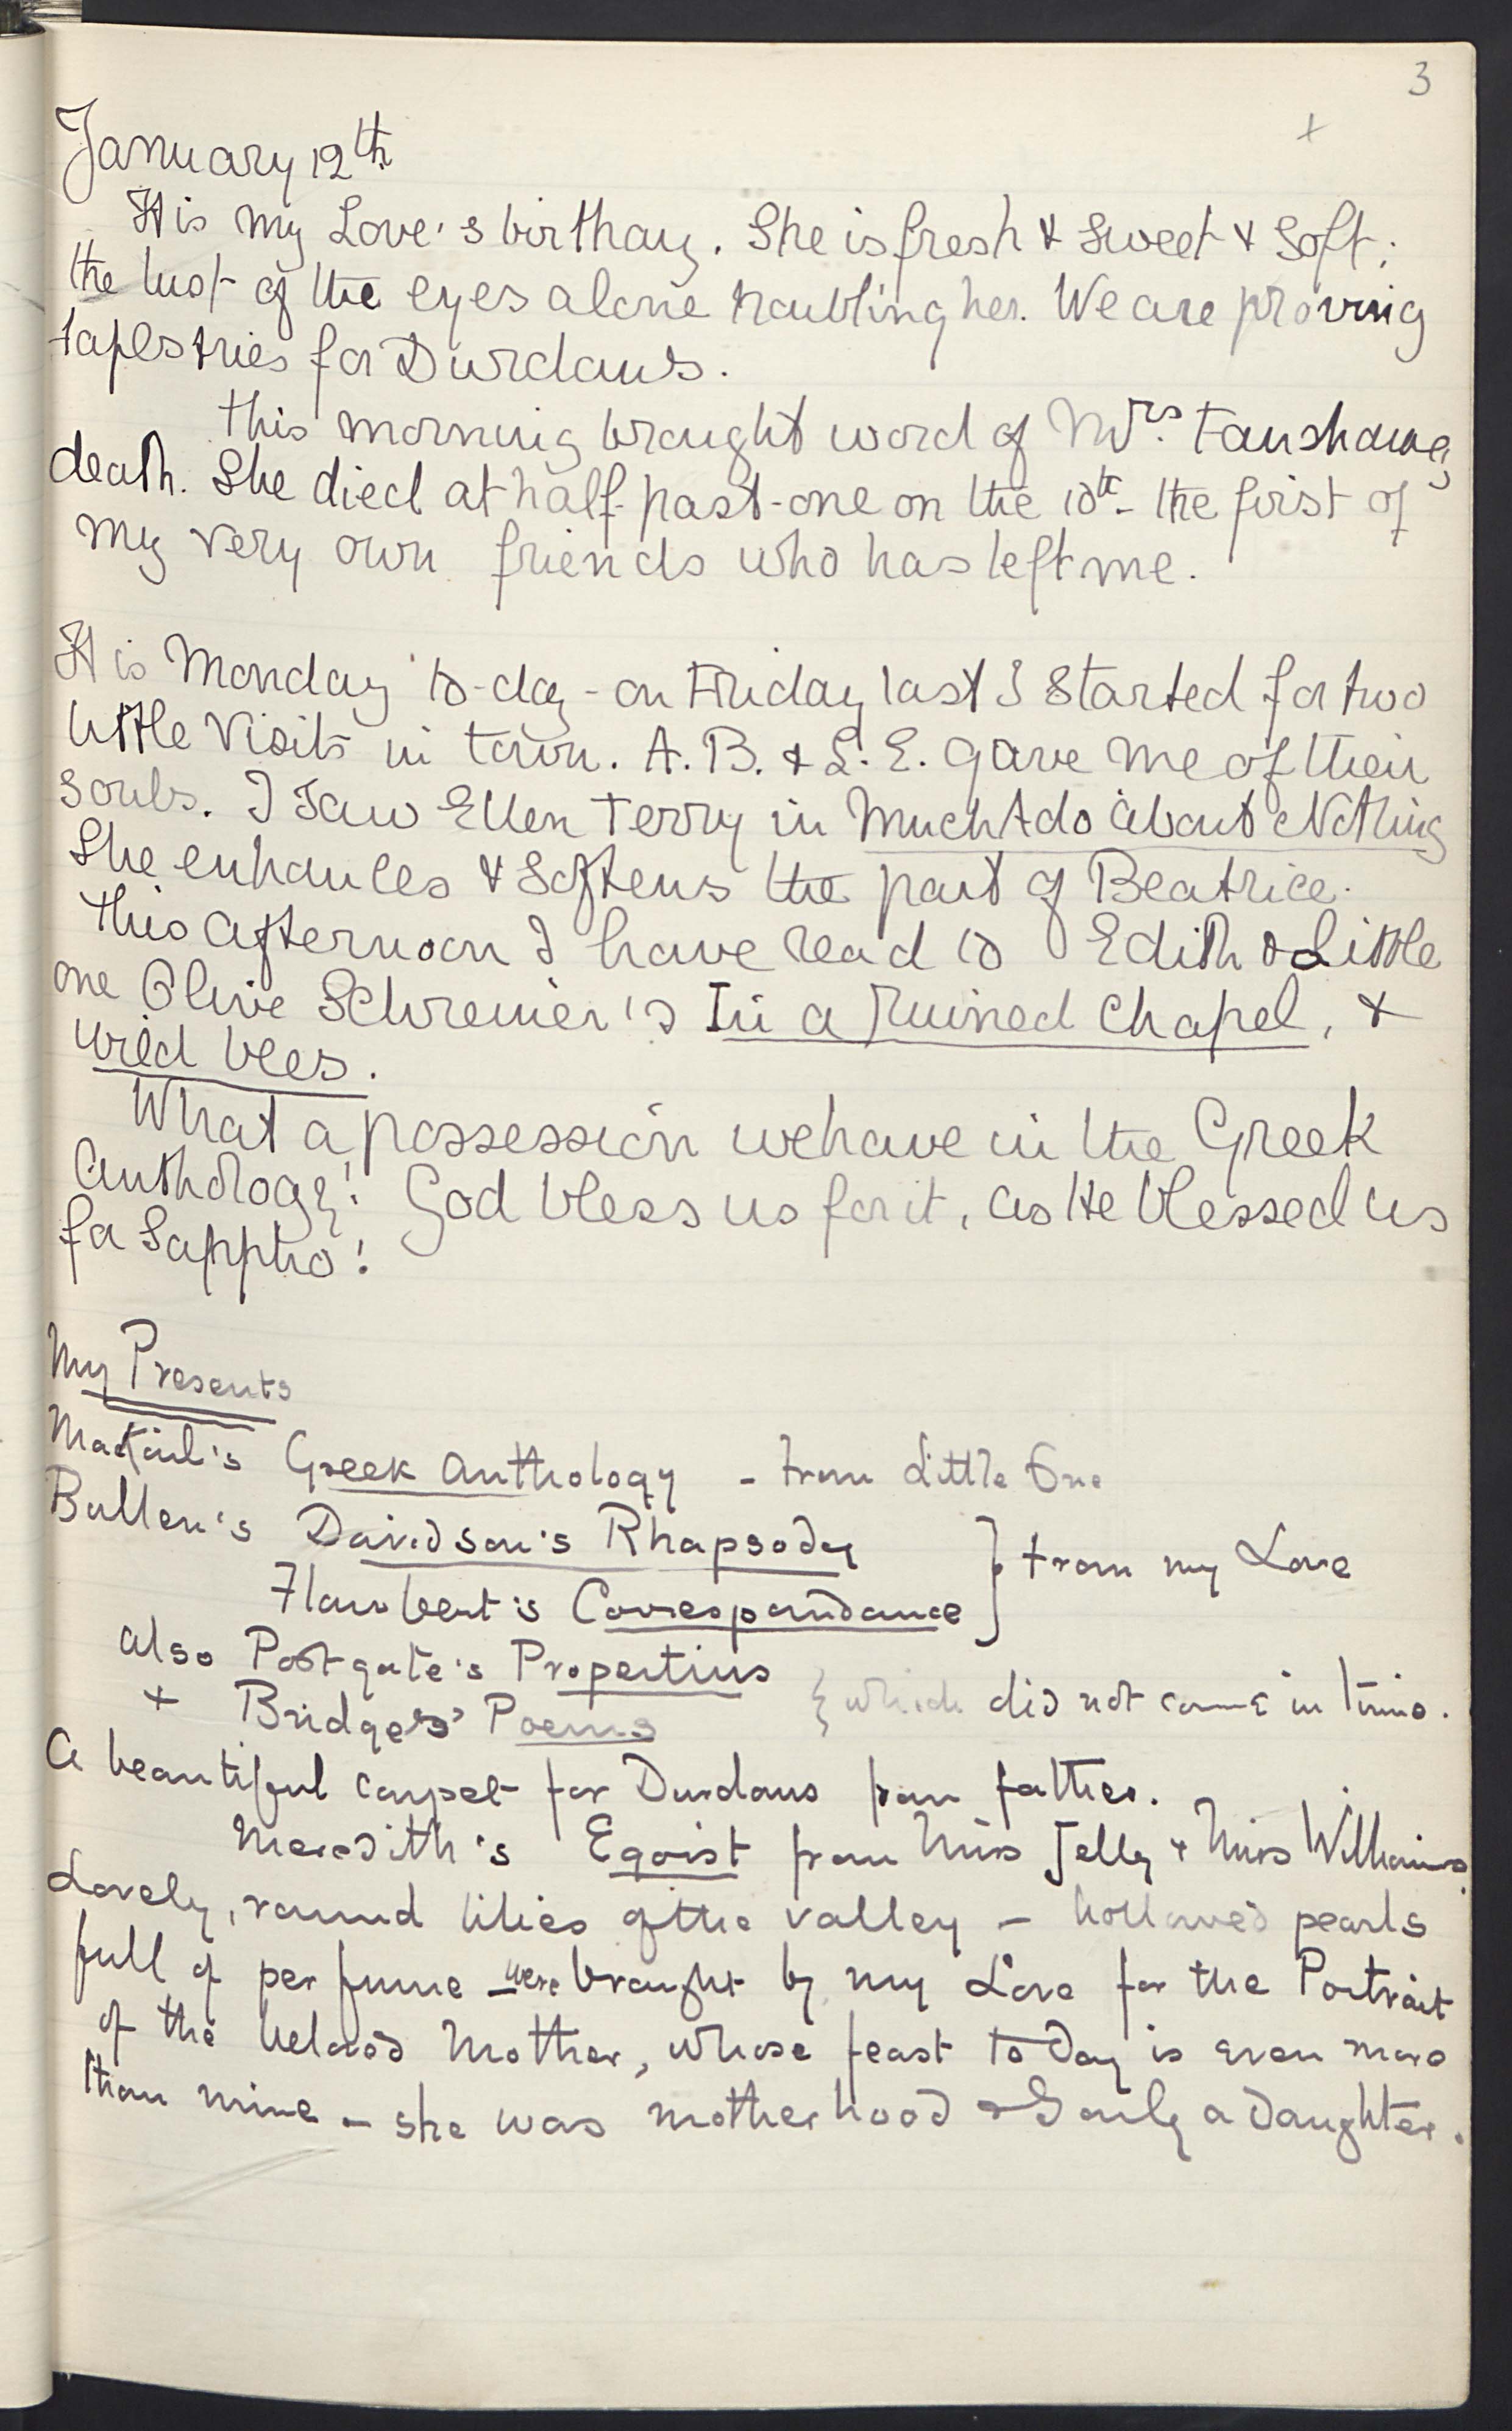 3
+
January 12th
It is my Love's birthay. She is fresh & sweet & soft;
the lust of the eyes alone troubling her. We are proving
tapestries for Durdans.
This morning brought word of Mrs. Fanshawe's
death. She died at half-past-one on the 10th - the first of
my very own friends who has left me.
It is Monday to-day - on Friday last I started for two
little visits in town. A.B. & L.E. gave me of their
souls. I saw Ellen Terry in Much Ado About Nothing
She enhances & softens the part of Beatrice.
This afternoon I have read to Edith & Little
one Olive Schreiner's In a Ruined Chapel, &
Wild bees.
What a possession we have in the Greek
Anthology! God bless us for it, as He blessed us
for Sappho!
My Presents
Mackail's Greek Anthology - from Little One
Bullen's Davidson's Rhapsody
Flaubert's Correspondance } from my Love
also Postgate's Propertius
+ Bridges' Poems } which did not come in time.
A beautiful carpet for Durdans from father.
Meredith's Egoist from Miss Jelly + Miss Williams.
Lovely, round lilies of the valley - hollowed pearls
full of perfume - were brought by my Love for the Portrait
of the beloved Mother, whose feast today is even more
than mine - she was motherhood & I only a daughter.